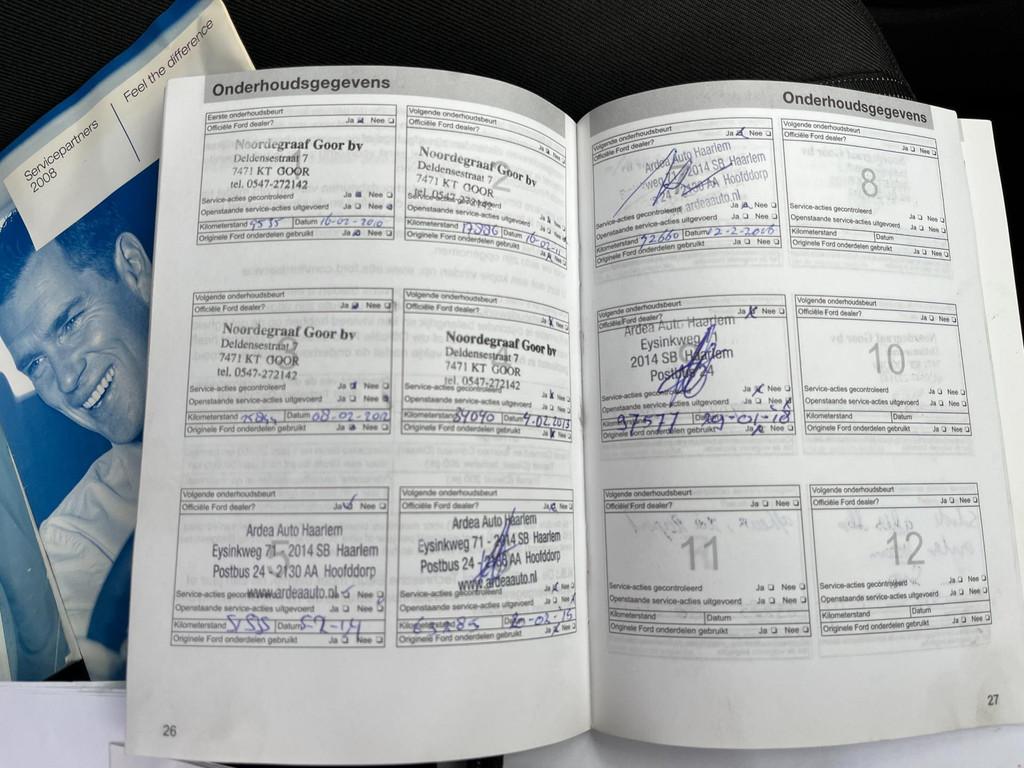 Servicepartners
2008
Feel the difference
Onderhoudsgegevens
Eerste onderhoudsbeurt
Officiële Ford dealer? Ja Nee
Noordegraaf Goor bv
Deldensestraat 7
7471 KT GOOR
tel. 0547-272142
Service-acties gecontroleerd Ja Nee
Openstaande service-acties uitgevoerd Ja Nee
Kilometerstand Datum 16-02-2010
Originele Ford onderdelen gebruikt Ja Nee
Volgende onderhoudsbeurt
Officiële Ford dealer? Ja Nee
2
Noordegraaf Goor bv
Deldensestraat 7
7471 KT GOOR
tel. 0547-272142
Service-acties gecontroleerd
Openstaande service-acties uitgevoerd Ja Nee
Kilometerstand Datum
Originele Ford onderdelen gebruikt Ja Nee
Volgende onderhoudsbeurt
Officiële Ford dealer? Ja Nee
Noordegraaf Goor bv
Deldensestraat 7
7471 KT GOOR
tel. 0547-272142
Service-acties gecontroleerd Ja Nee
Openstaande service-acties uitgevoerd Ja Nee
Kilometerstand Datum 08-02-2012
Originele Ford onderdelen gebruikt Ja Nee
Volgende onderhoudsbeurt
Officiële Ford dealer? Ja Nee
Noordegraaf Goor bv
Deldensestraat 7
7471 KT GOOR
tel. 0547-272142
Service-acties gecontroleerd Ja Nee
Openstaande service-acties uitgevoerd Ja Nee
Kilometerstand Datum 4-02-2013
Originele Ford onderdelen gebruikt Ja Nee
Volgende onderhoudsbeurt
Officiële Ford dealer? Ja Nee
Ardea Auto Haarlem
Eysinkweg 71 - 2014 SB Haarlem
Postbus 24 - 2130 AA Hoofddorp
www.ardeaauto.nl
Service-acties gecontroleerd Ja Nee
Openstaande service-acties uitgevoerd Ja Nee
Kilometerstand Datum
Originele Ford onderdelen gebruikt Ja Nee
Volgende onderhoudsbeurt
Officiële Ford dealer? Ja Nee
Ardea Auto Haarlem
Eysinkweg 71 - 2014 SB Haarlem
Postbus 24 - 2130 AA Hoofddorp
www.ardeaauto.nl
Service-acties gecontroleerd Ja Nee
Openstaande service-acties uitgevoerd Ja Nee
Kilometerstand
Originele Ford onderdelen gebruikt Ja Nee
26
Onderhoudsgegevens
Volgende onderhoudsbeurt
Officiële Ford dealer? Ja Nee
Ardea Auto Haarlem
2014 SB Haarlem
2130 AA Hoofddorp
ardeaauto.nl
Service-acties gecontroleerd Ja Nee
Openstaande service-acties uitgevoerd Ja Nee
Kilometerstand Datum
Originele Ford onderdelen gebruikt Ja Nee
Volgende onderhoudsbeurt
Officiële Ford dealer? Ja Nee
8
Service-acties gecontroleerd Ja Nee
Openstaande service-acties uitgevoerd Ja Nee
Kilometerstand Datum
Originele Ford onderdelen gebruikt Ja Nee
Volgende onderhoudsbeurt
Officiële Ford dealer? Ja Nee
Ardea Auto Haarlem
Eysinkweg
2014 SB Haarlem
Postbus 24
Service-acties gecontroleerd Ja Nee
Openstaande service-acties uitgevoerd Ja Nee
97511
Originele Ford onderdelen gebruikt Ja Nee
Volgende onderhoudsbeurt
Officiële Ford dealer? Ja Nee
10
Service-acties gecontroleerd Ja Nee
Openstaande service-acties uitgevoerd Ja Nee
Kilometerstand Datum
Originele Ford onderdelen gebruikt Ja Nee
Volgende onderhoudsbeurt
Officiële Ford dealer? Ja Nee
11
Service-acties gecontroleerd Ja Nee
Openstaande service-acties uitgevoerd Ja Nee
Kilometerstand Datum
Originele Ford onderdelen gebruikt Ja Nee
Volgende onderhoudsbeurt
Officiële Ford dealer? Ja Nee
12
Service-acties gecontroleerd Ja Nee
Openstaande service-acties uitgevoerd Ja Nee
Kilometerstand Datum
Originele Ford onderdelen gebruikt Ja Nee
27